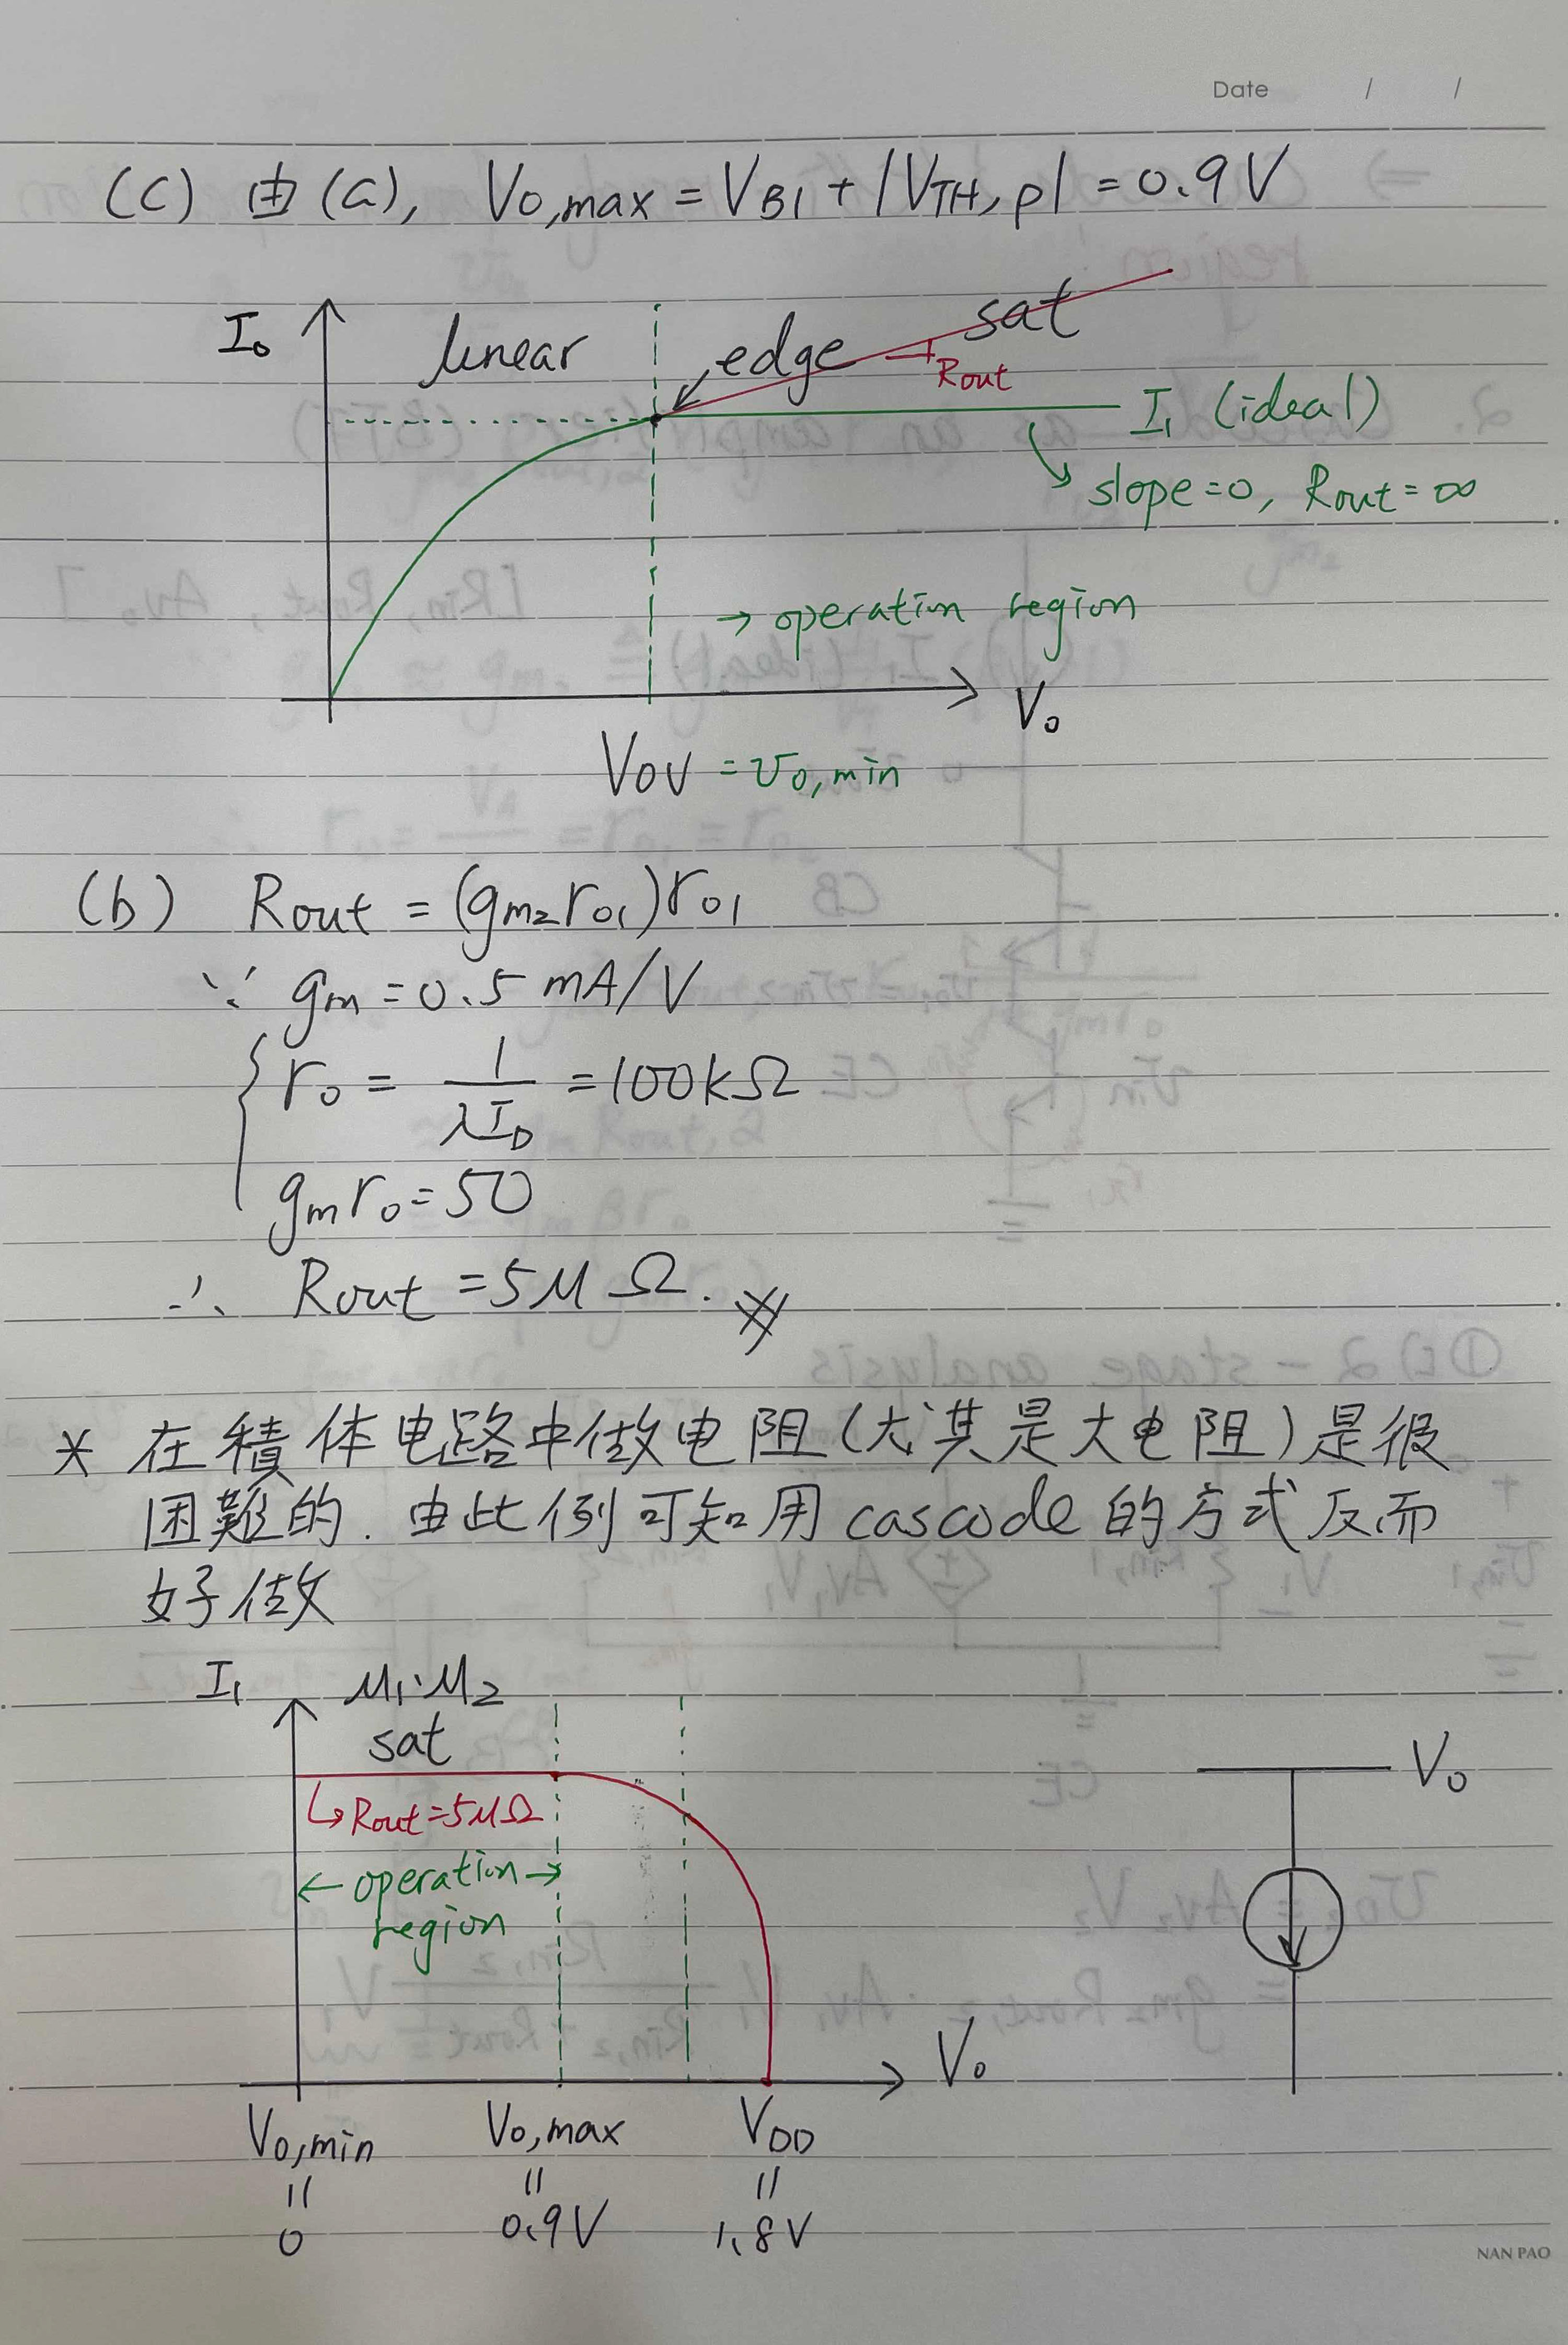 Date / /
(c) 由(a), Vo,max = VB1 + |VTH,p| = 0.9V
Io linear edge sat
Rout
I1 (ideal)
slope=0, Rout=∞
→ operation region
Vo
Vov = vo,min
(b) Rout = (gm2ro1)ro1
∵ gm = 0.5 mA/V
ro = 1/λID = 100kΩ
gmro = 50
∴ Rout = 5MΩ.
* 在積体电路中做电阻(尤其是大电阻)是很
困難的. 由此例可知用 cascode 的方式反而
好做
I1 M1、M2
sat
↳ Rout=5MΩ
← operation →
region
Vo
Vo
Vo,min Vo,max VDD
= = =
0 0.9V 1.8V
NAN PAO